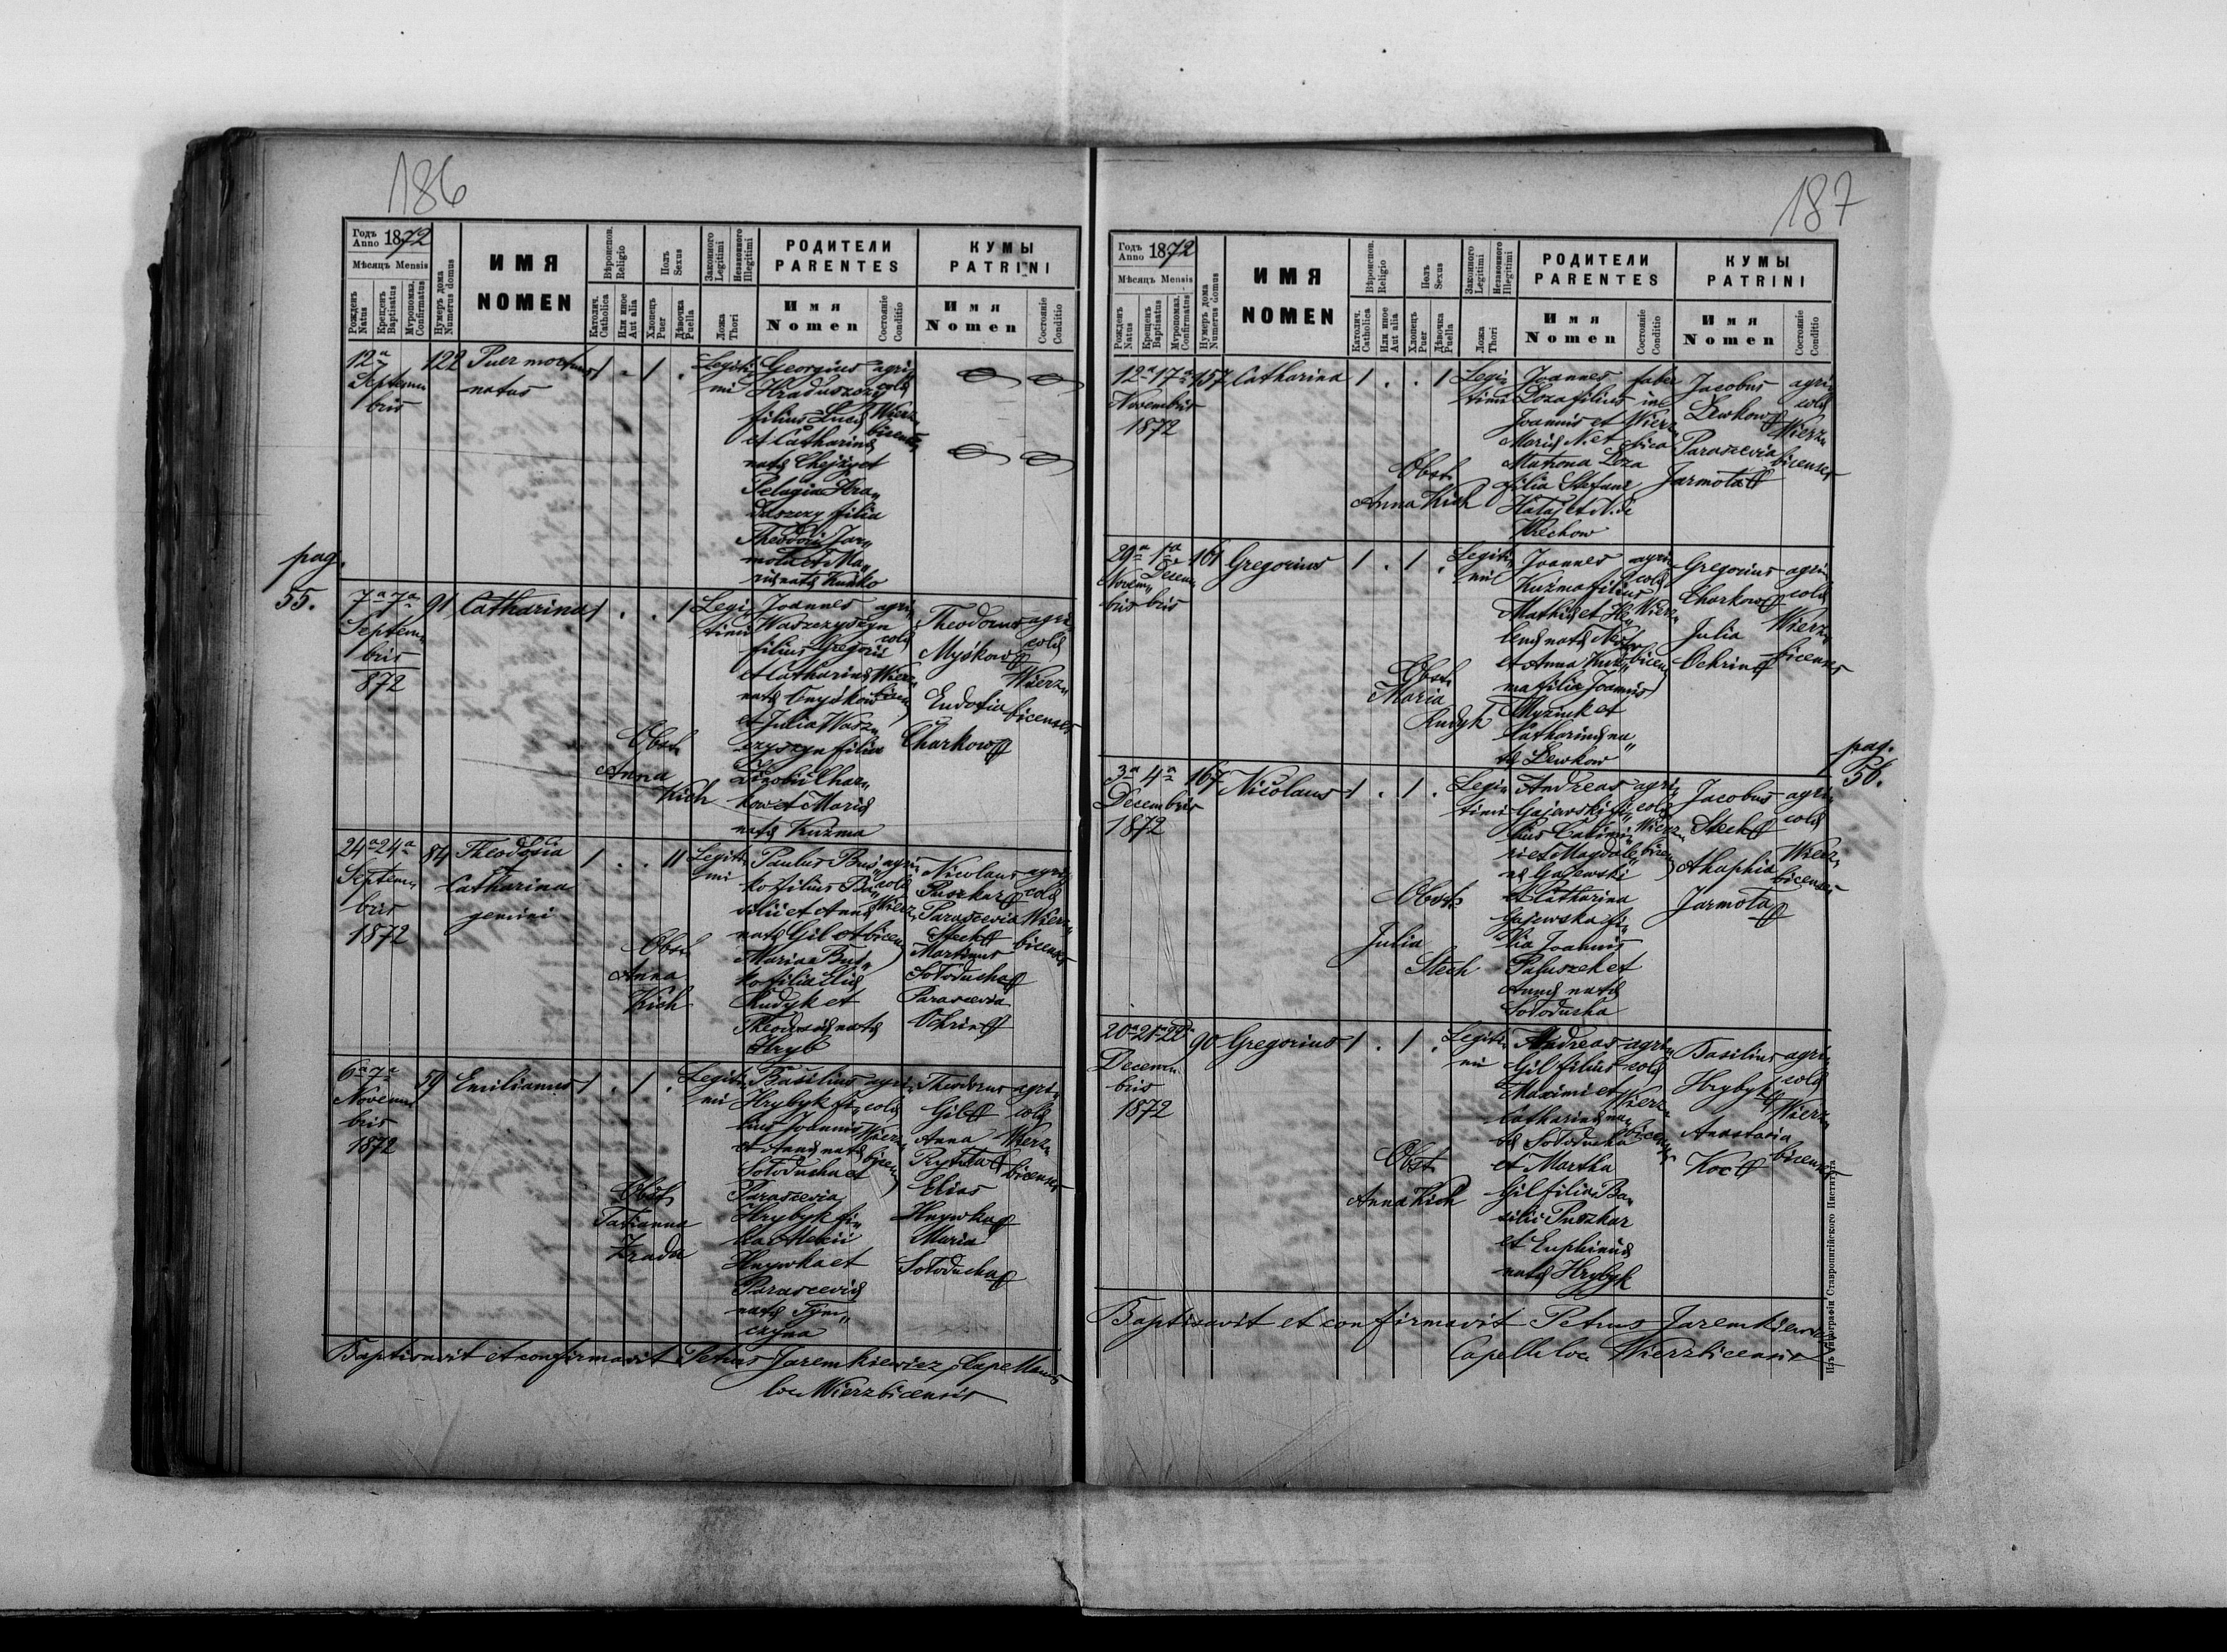 186
Годъ Anno 1872
Мѣсяцъ Mensis
Рожденъ Natus
Крещенъ Baptisatus
Мѵропомаз. Confirmatus
Нумеръ дома Numerus domus
ИМЯ
NOMEN
Вѣроиспов. Religio
Католич. Catholica
Или иное Aut alia
Полъ Sexus
Хлопець Puer
Дѣвочка Puella
Законного Legitimi
Незаконного Illegitimi
Ложа Thori
РОДИТЕЛИ
PARENTES
Имя
Nomen
Состояніе Conditio
КУМЫ
PATRINI
Имя
Nomen
Состояніе Conditio
12a
Septem
bris
122
Puer mortuus
natus
1 . 1 .
Legiti
mi
Georgius
Hraduszczy
filius Lucä
et Catharinä
natä Chejź et
Pelagia Hra„
duszczy filia
Theodori Jar„
mota et Ma„
riä natä Kunko
agri
colä
Wierz„
bicenses
pag.
55.
7a 7a
Septem„
bris
872
91
Catharina
1 . . 1
Legi„
timi
Joannes
Waszczyszyn
filius Gregorii
et Catharinä
natä Onyśkow
et Julia Wasz„
czyszyn filia
Char„
kow et Mariä
natä Kuzma
agri
colä
Wierz„
bicen
Theodorus
Myśkow
Eudoxia
Charkow
agri
colä
Wierz„
bicenses
Obst.
Anna
Kich
24a 24a
Septem„
bris
1872
84
Theodosia
Catharina
gemini
1 . . 11
Legiti
mi
Paulus Bus„
ko filius Ba„
silii et Annä
natä Gil et
Maria Bus„
ko filia Eliä
Rudyk et
Theodosiä natä
Hryb
agri
colä
Wierz„
bicen
Nicolaus
Puszkar
Parascevia
Stech
Martinus
Sołoducha
Parascevia
Ochrin
agri
colä
Wierz„
bicenses
Obst.
Anna
Kich
6a 7a
Novem
bris
1872
59
Emilianus
1 . 1 .
Legiti
mi
Basilius
Hrybyk fi„
lius Joannis
et Annä natä
Sołoducha et
Parascevia
Hrybyk fi„
lia Alexii
Hnywka et
Parasceviä
natä Tym„
czyna
agri
colä
Wierz„
bicen
Theodorus
Gil
Anna
Pryttla
Elias
Hnywka
Maria
Sołoducha
agri
colä
Wierz„
bicenses
Obst.
Tatianna
Zrada
Baptisavit et confirmavit Petrus Jaremkiewicz, Capellanus
loc. Wierzbicensis
187
Годъ Anno 1872
Мѣсяцъ Mensis
Рожденъ Natus
Крещенъ Baptisatus
Мѵропомаз. Confirmatus
Нумеръ дома Numerus domus
ИМЯ
NOMEN
Вѣроиспов. Religio
Католич. Catholica
Или иное Aut alia
Полъ Sexus
Хлопець Puer
Дѣвочка Puella
Законного Legitimi
Незаконного Illegitimi
Ложа Thori
РОДИТЕЛИ
PARENTES
Имя
Nomen
Состояніе Conditio
КУМЫ
PATRINI
Имя
Nomen
Состояніе Conditio
12a 17a
Novembris
1872
157
Catharina
1 . . 1
Legi„
timi
Joannes
Loza filius
Joannis et
Mariä N. et
Matrona Loza
filia Stefani
Hałaj et N. de
Wiechow
faber
in
Wierz„
bica
Jacobus
Lewkow
Parascevia
Jarmota
agri
colä
Wierz„
bicenses
Obst.
Anna Kich
29a 1a
Novem„ Decem„
bris bris
161
Gregorius
1 . 1 .
Legiti
mi
Joannes
Kuźma filius
Mathiä et He„
lenä natä
et Anna Kuź„
ma filia Joannis
Myziuk et
Catharinä na„
tä Lewkow
agri
colä
Wierz„
bicen„
Gregorius
Charkow
Julia
Ochrin
agri
colä
Wierz„
bicenses
Obst.
Maria
Rudyk
pag.
56.
3a 4a
Decembris
1872
167
Nicolaus
1 . 1 .
Legi„
timi
Andreas
Gajewski fi„
lius Casimi„
ri et Magdale„
nä Gajewski
et Catharina
Gajewska fi„
lia Joannis
Paluszek et
Annä natä
Sołoducha
agri
colä
Wierz„
bicen
Jacobus
Stech
Ahaphia
Jarmota
agri
colä
Wierz„
bicenses
Obst.
Julia
Stech
20a 21a 22
Decem„
bris
1872
90
Gregorius
1 . 1 .
Legiti
mi
Andreas
Gil filius
Maximi et
Catharinä na„
tä Sołoducha
et Martha
Gil filia Ba„
silii Puszkar
et Euphimiä
natä Hrybyk
agri
colä
Wierz„
bicenses
Basilius
Hrybyk
Anastasia
Koc
agri
colä
Wierz„
bicenses
Obst.
Anna Kich
Baptisavit et confirmavit Petrus Jaremkiewicz
Capell. loc. Wierzbicensis
Изъ типографіи Ставропигійского Института